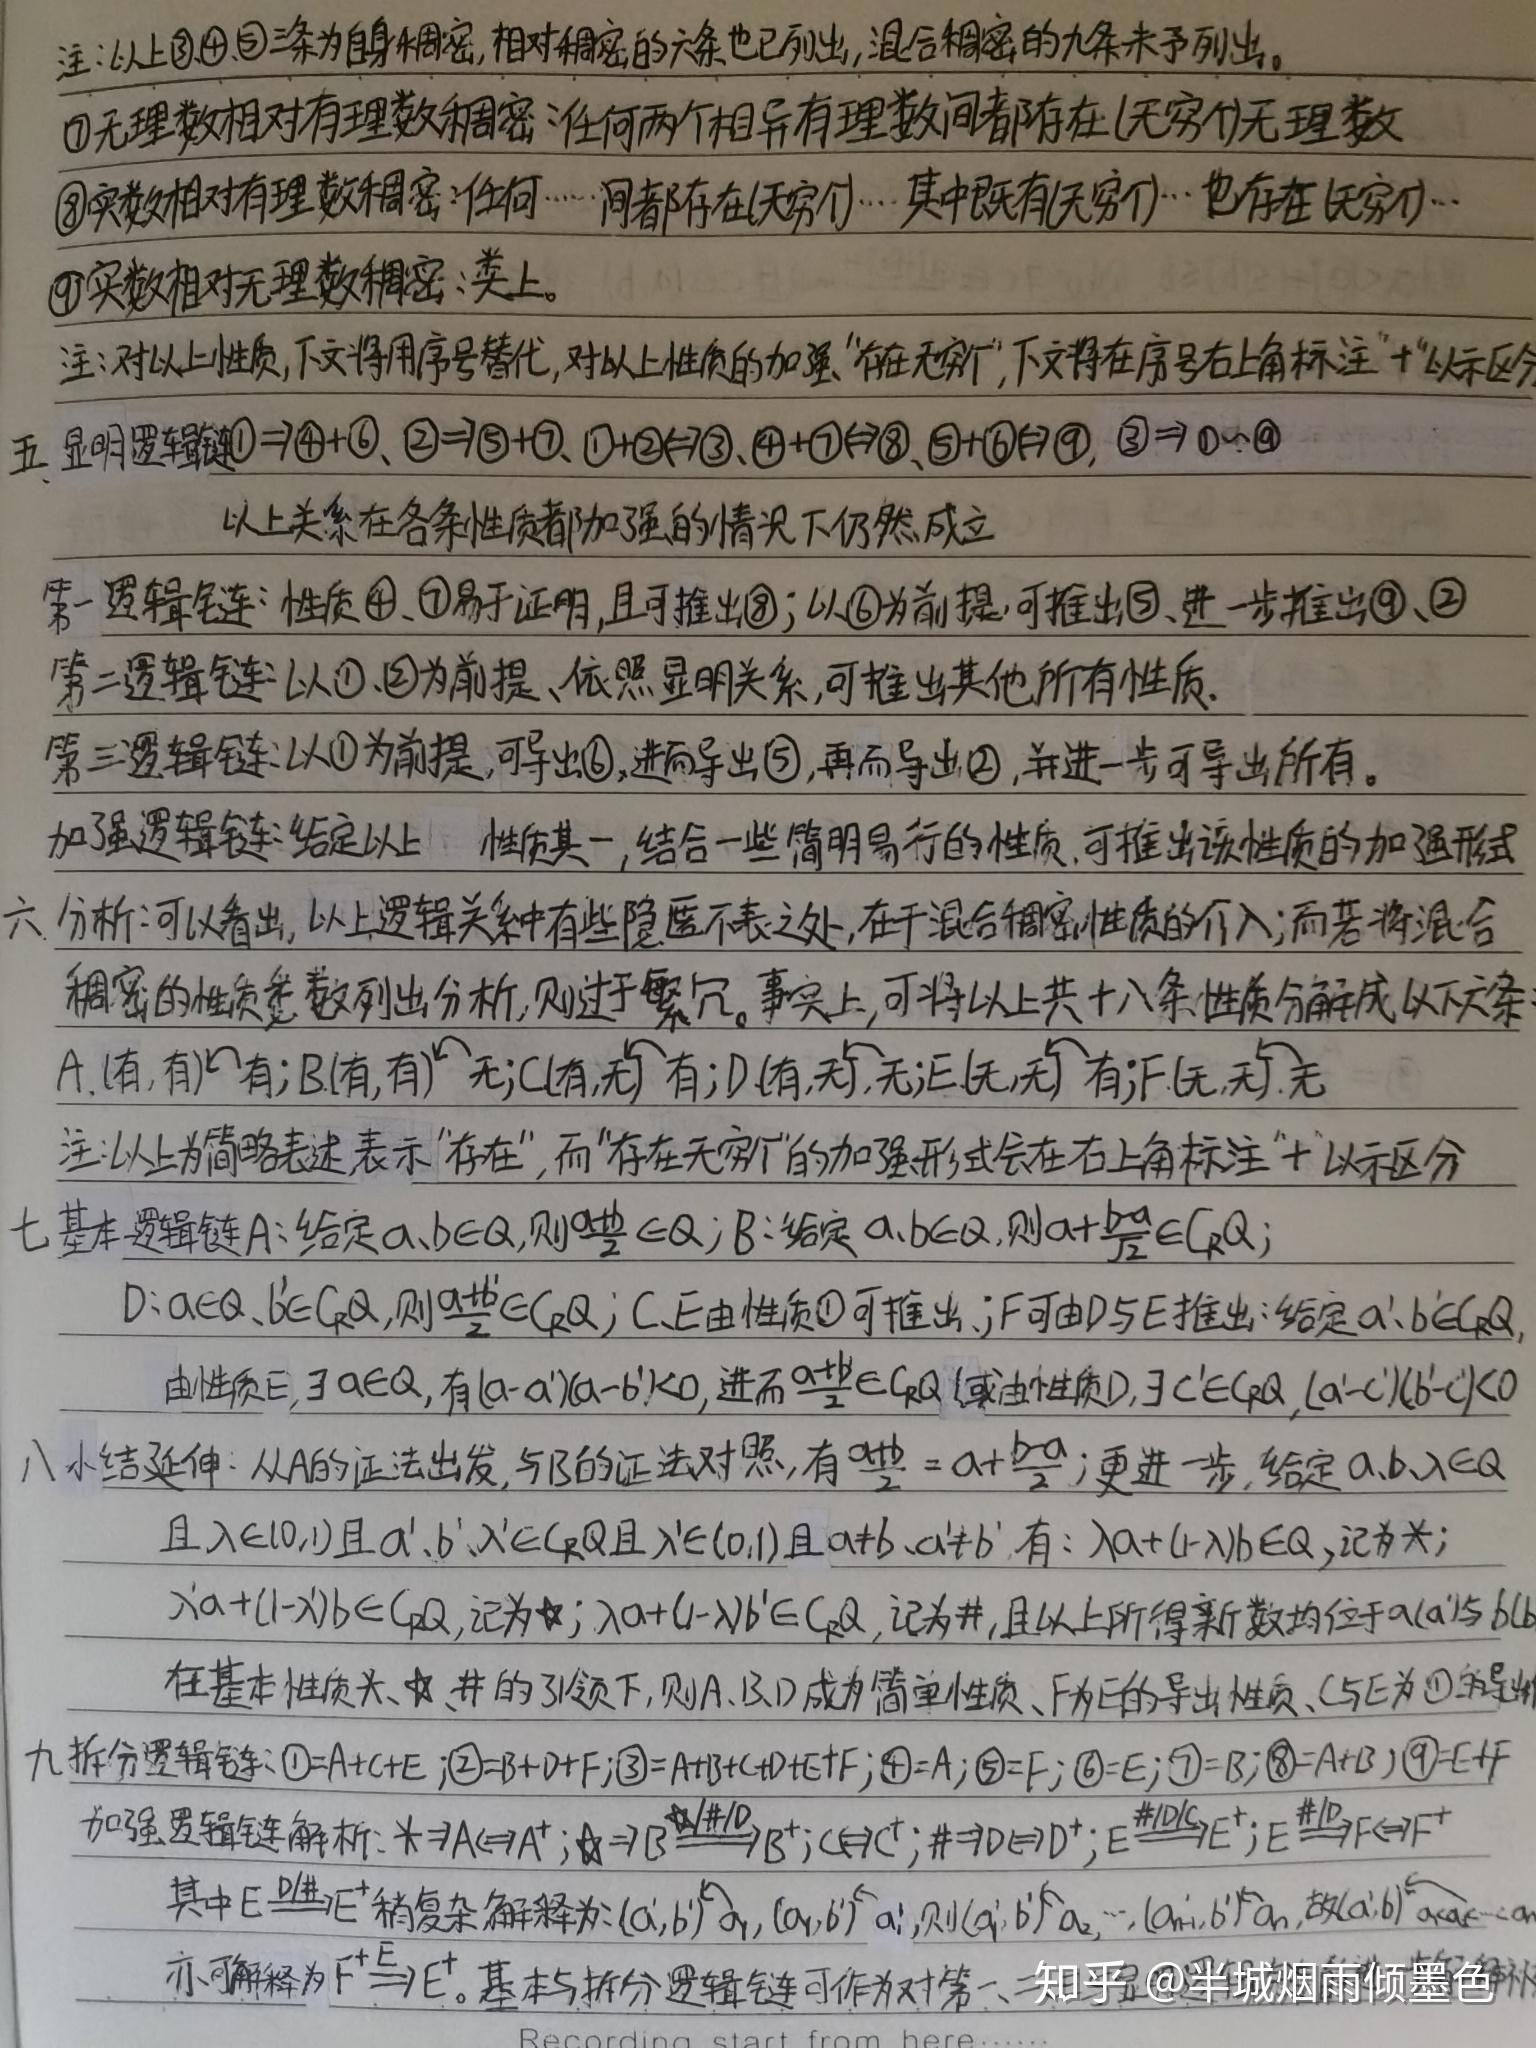 注:以上③、④、⑤三条为自身稠密,相对稠密的六条也已列出,混合稠密的九条未予列出。
⑦无理数相对有理数稠密:任何两个相异有理数间都存在(无穷个)无理数
⑧实数相对有理数稠密:任何……间都存在(无穷个)…其中既有(无穷个)…也存在(无穷个)…
⑨实数相对无理数稠密:类上。
注:对以上性质,下文将用序号替代,对以上性质的加强"存在无穷个",下文将在序号右上角标注"+"以示区分
五、显明逻辑链①⇒④+⑥、②⇒⑤+⑦、①+②⇔③、④+⑦⇔⑧、⑤+⑥⇔⑨,③⇒①~⑨
以上关系在各条性质都加强的情况下仍然成立
第一逻辑链:性质④、⑦易于证明,且可推出⑧;以⑥为前提,可推出⑤、进一步推出⑨、②
第二逻辑链:以①、②为前提、依照显明关系,可推出其他所有性质.
第三逻辑链:以①为前提,可导出⑥,进而导出⑤,再而导出②,并进一步可导出所有。
加强逻辑链:给定以上 性质其一,结合一些简明易行的性质,可推出该性质的加强形式
六、分析:可以看出,以上逻辑关系中有些隐匿不表之处,在于混合稠密性质的介入;而若将混合
稠密的性质悉数列出分析,则过于繁冗。事实上,可将以上共十八条性质分解成以下六条:
A.(有,有)↶有;B.(有,有)↶无;C.(有,无)↶有;D.(有,无)↶无;E.(无,无)↶有;F.(无,无)↶无
注:以上为简略表述,表示"存在",而"存在无穷个"的加强形式会在右上角标注"+"以示区分
七 基本逻辑链A:给定a、b∈Q,则(a+b)/2∈Q;B:给定a、b∈Q,则a+(b-a)/√2∈C_RQ;
D:a∈Q、b'∈C_RQ,则(a+b')/2∈C_RQ;C、E由性质①可推出;F可由D与E推出:给定a'、b'∈C_RQ,
由性质E,∃a∈Q,有(a-a')(a-b')<0,进而(a+b')/2∈C_RQ(或由性质D,∃c'∈C_RQ,(a'-c')(b'-c')<0
八 小结延伸:从A的证法出发,与B的证法对照,有(a+b)/2=a+(b-a)/2;更进一步,给定a、b、λ∈Q
且λ∈(0,1)且a'、b'、λ'∈C_RQ且λ'∈(0,1)且a≠b、a'≠b',有:λa+(1-λ)b∈Q,记为*;
λ'a+(1-λ')b∈C_RQ,记为☆;λa+(1-λ)b'∈C_RQ,记为#,且以上所得新数均位于a(a')与b(b
在基本性质*、☆、#的引领下,则A、B、D成为简单性质、F为E的导出性质、C与E为①的导出
九 拆分逻辑链:①=A+C+E;②=B+D+F;③=A+B+C+D+E+F;④=A;⑤=F;⑥=E;⑦=B;⑧=A+B;⑨=E+F
加强逻辑链解析:*⇒A⇔A⁺;☆⇒B=☆/#/D⇒B⁺;C⇔C⁺;#⇒D⇔D⁺;E=#/D/C⇒E⁺;E=#/D⇒F⇔F⁺
其中E=D/#⇒E⁺稍复杂,解释为:(a',b')↶a₁,(a₁,b')↶a₁',则(a₁',b')↶a₂,…,(aₙ₋₁',b')↶aₙ,故(a',b')↶a₁<a₂<…<aₙ
亦可解释为F⁺=E⇒E⁺。基本与拆分逻辑链可作为对第一、二
知乎 @半城烟雨倾墨色
Recording start from here……